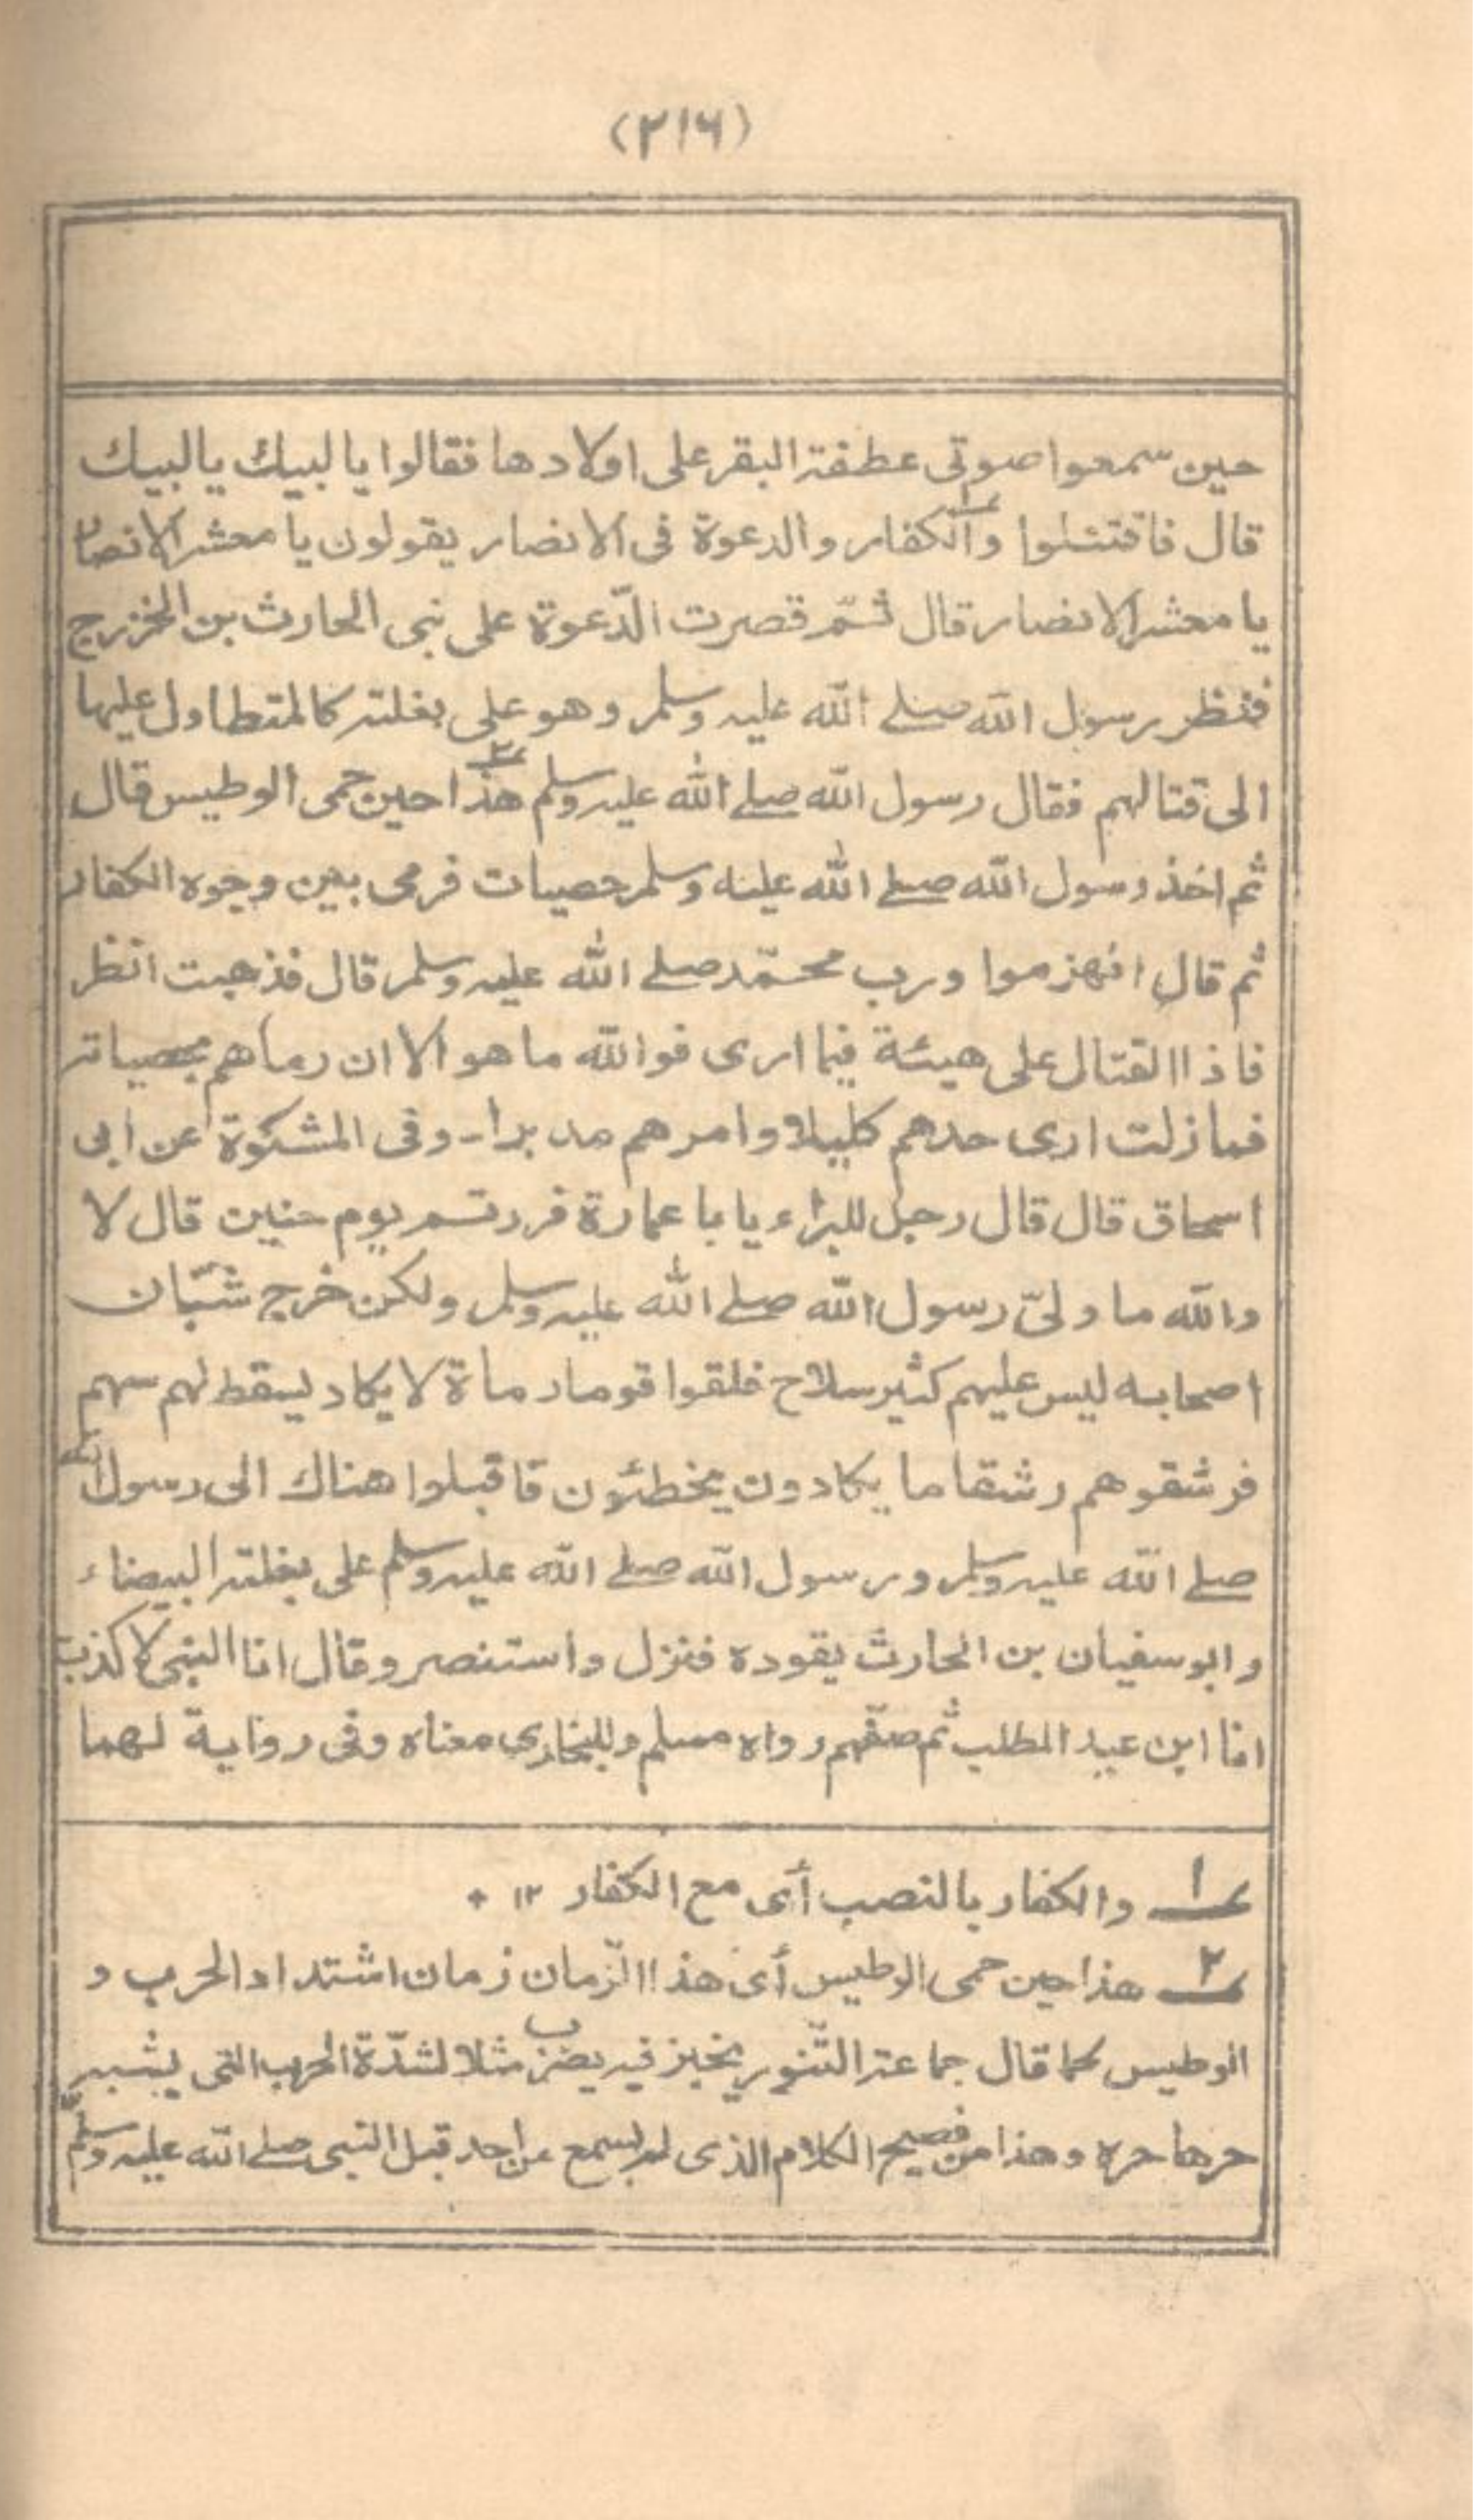 (۲۱۶)
حين سمعوا صوتى عطفة البقر على اولادها فقالوا يا لبيك يا لبيك
قال فاقتتلوا والكفار والدعوة فى الانصار يقولون يا معشر الانصار
يا معشر الانصار قال ثمّ قصرت الدّعوة على بنى الحارث بن الخزرج
فنظر رسول الله صلے الله عليه وسلم وهو على بغلته كالمتطاول عليها
الى قتالهم فقال رسول الله صلے الله عليه وسلم هذا حين حمى الوطيس قال
ثم اخذ رسول الله صلے الله عليه وسلم حصيات فرمى بهن وجوه الكفار
ثم قال انهزموا ورب محمّد صلے الله عليه وسلم قال فذهبت انظر
فاذا القتال على هيئة فيما ارى فوالله ما هو الا ان رماهم بحصياته
فمازلت ارى حدهم كليلا وامرهم مدبرا - وفى المشكوة عن ابى
اسحاق قال قال رجل للبراء يا با عمارة فررتم يوم حنين قال لا
والله ما ولىّ رسول الله صلے الله عليه وسلم ولكن خرج شبّان
اصحابه ليس عليهم كثير سلاح فلقوا قوما رماة لا يكاد يسقط لهم سهم
فرشقوهم رشقا ما يكادون يخطئون فاقبلوا هناك الى رسول الله
صلے الله عليه وسلم ورسول الله صلے الله عليه وسلم على بغلته البيضاء
وابو سفيان بن الحارث يقوده فنزل واستنصر وقال انا النبى لا كذب
انا ابن عبد المطلب ثم صفّهم رواه مسلم وللبخاري معناه وفى رواية لهما
؀۱ والكفار بالنصب أى مع الكفار ۱۲ +
؀۲ هذا حين حمى الوطيس أى هذا الزّمان زمان اشتداد الحرب و
الوطيس كما قال جماعة التّنور يخبز فيه يضرب مثلا لشدّة الحرب التى يشبه
حرها حره وهذا من فصيح الكلام الذى لم يسمع من احد قبل النبى صلے الله عليه وسلم